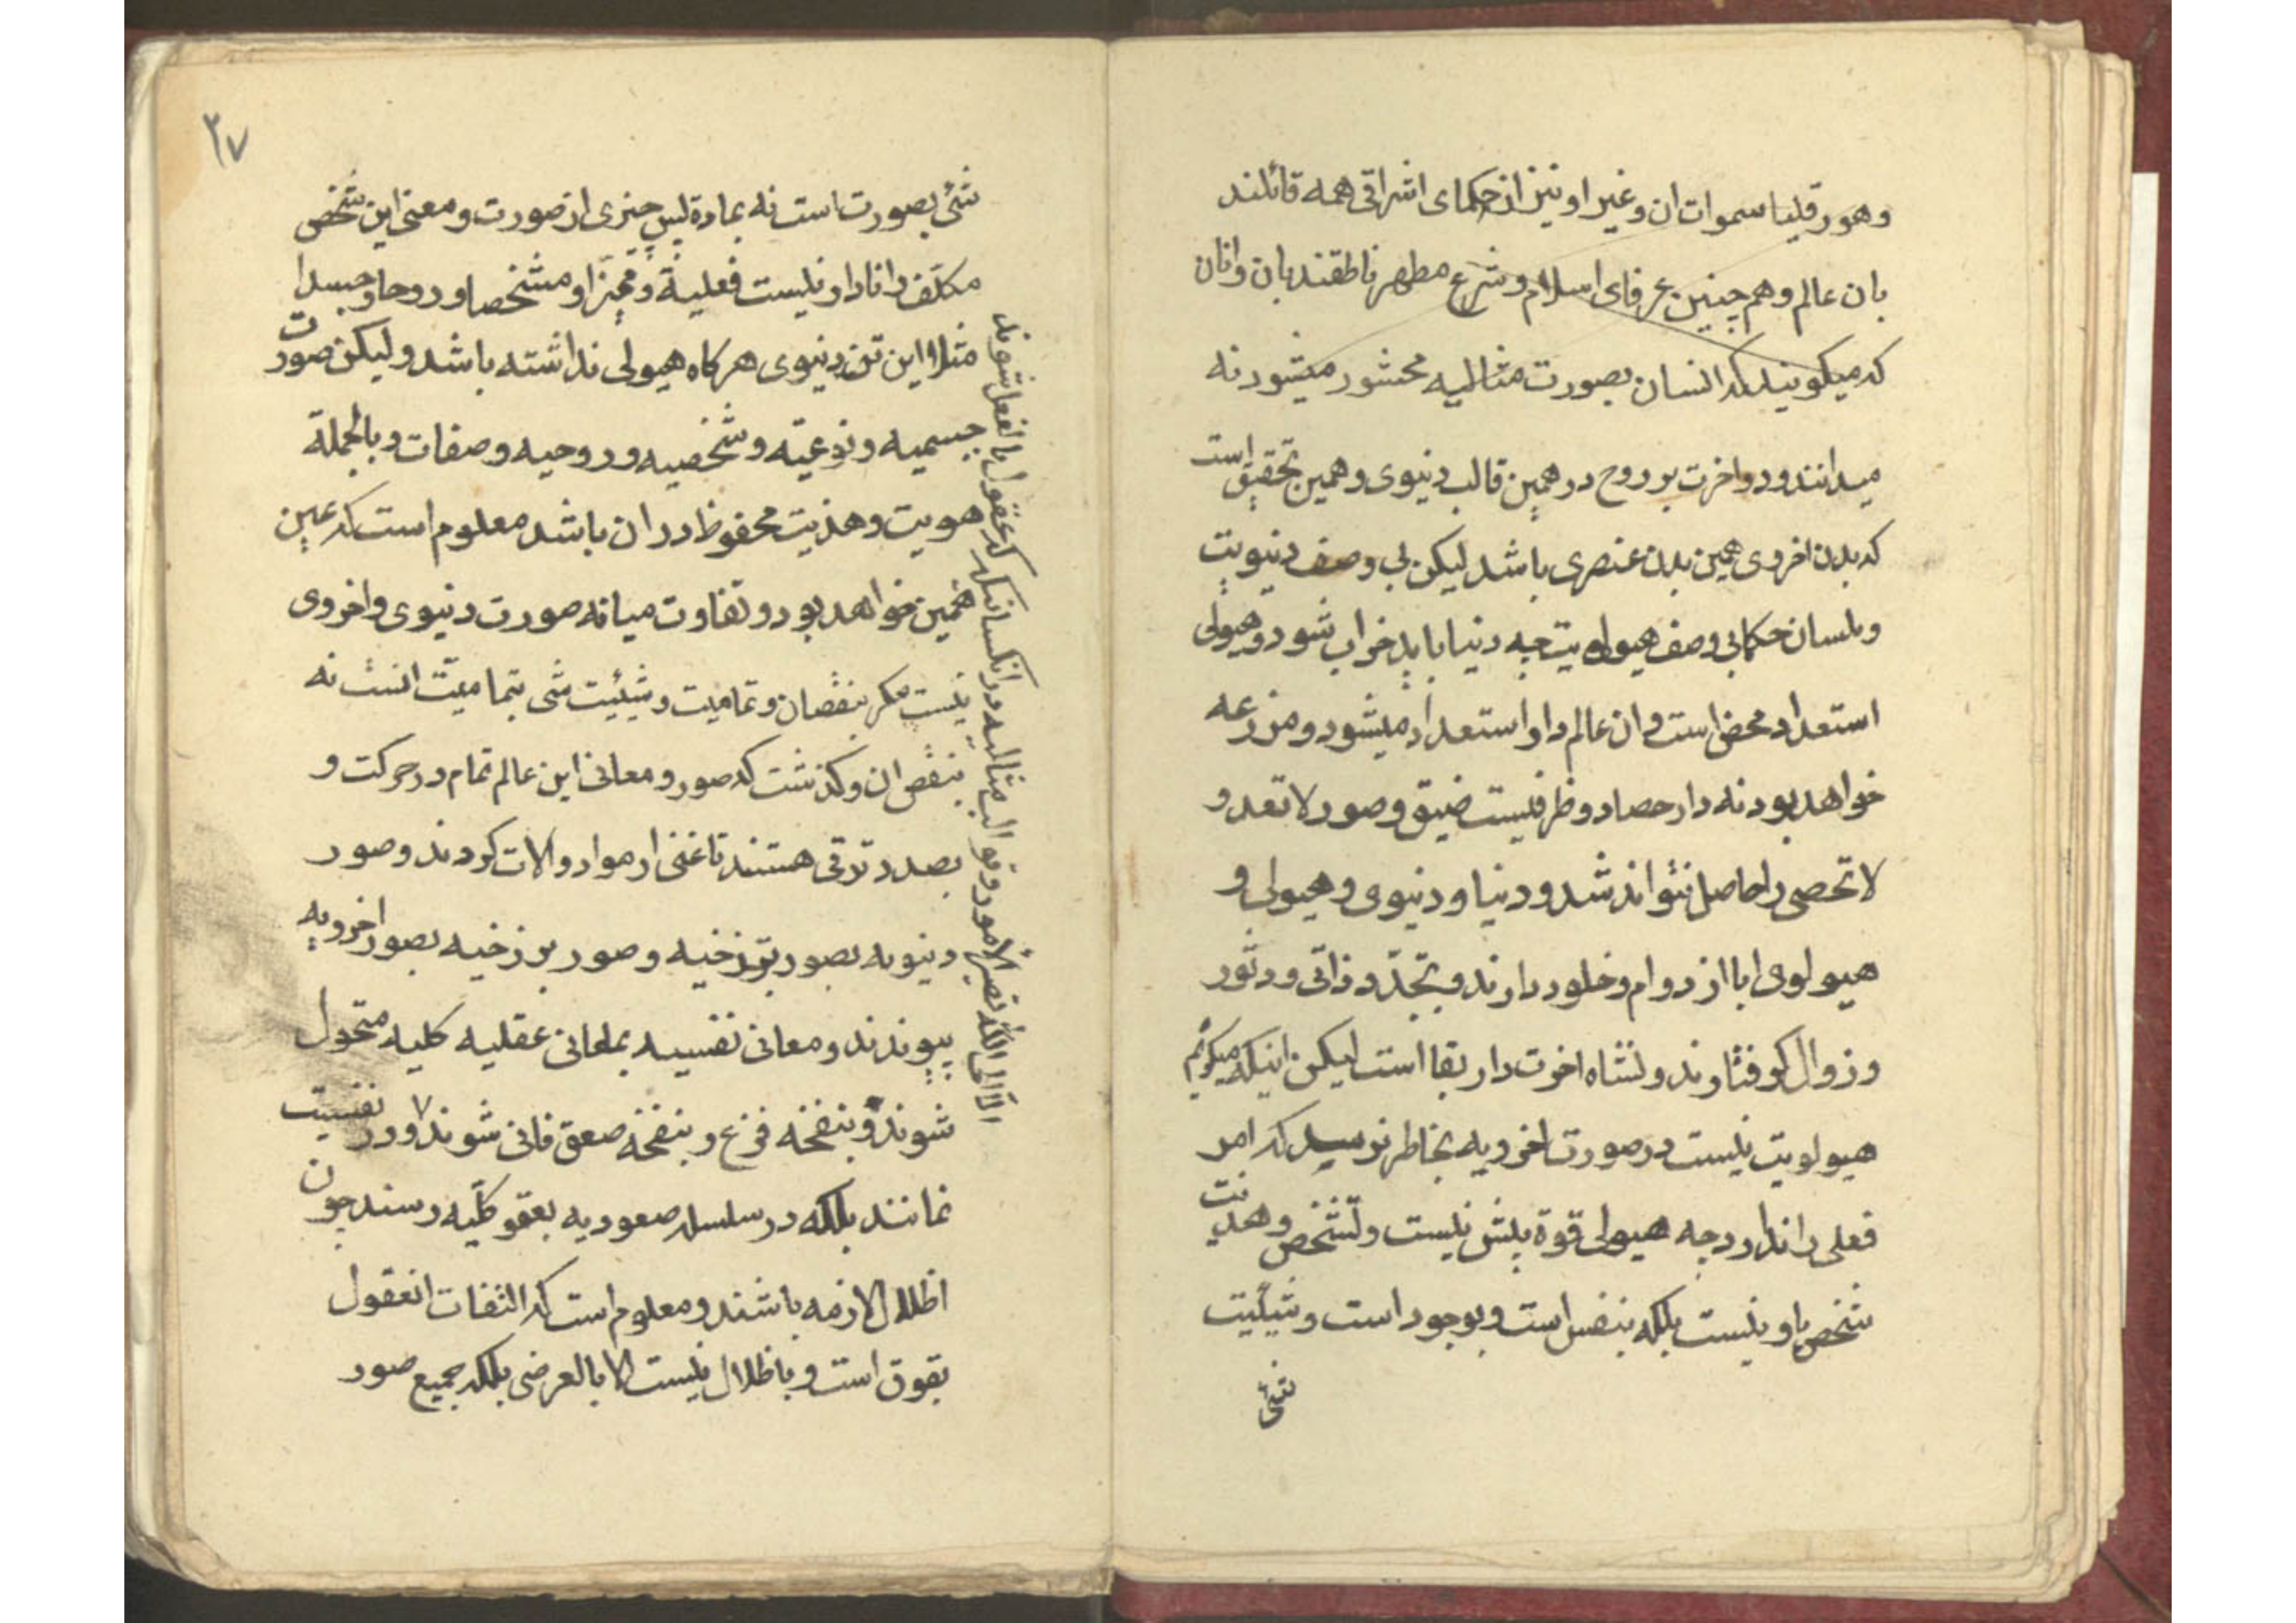 وهورقلیا سموات ان وغیر او نیز از حکمای اشراقی همه قائلند
بان عالم وهم چنین عرفای اسلام وشرع مطهر ناطقند بان وانان
که میکویند که انسان بصورت مثالیه محشور میشود نه
میدانند ودر اخرت بر روح در همین قالب دنیوی وهمین تحقیق است
که بدن اخروی همین بدن عنصری باشد لیکن بی وصف دنیویت
وبلسان حکما بی وصف هیولویت چه دنیا باید خراب شود وهیولی
استعداد محض است وان عالم دار استعداد میشود ومزرعه
خواهد بود نه دار حصاد وظرفیست ضیق وصور لا تعد و
لا تحصی را حامل نتواند شد ودنیا ودنیوی وهیولی و
هیولوی ابا از دوام وخلود دارند وبتجدّد ذاتی ودثور
وزوال کرفتارند ونشاه اخرت دار بقا است لیکن اینکه میکوئیم
هیولویت نیست در صورت اخرویه بخاطر نرسید که امر
فعلی را ندارد چه هیولی قوة بیش نیست وتشخص وهذیت
شخص باو نیست بلکه بنفس است وبوجود است وشیئیت
شئ
۳۷
شئ بصورت است نه بماده لیس چیزی از صورت ومعنی این شخص
مکلف دانا دار نیست فعلیة وممیّز او مشخصا وروحا وجسدا
مثلا این تن دنیوی هرکاه هیولی نداشته باشد ولیکن صورت
جسمیه ونوعیّه وشخصیه وروحیه وصفات وبالجملة
هویت وهذیت محفوظ در ان باشد معلوم است که عین
همین خواهد بود وتفاوت میانه صورت دنیوی واخروی
نیست مکر بنقصان وتمامیت وشیئیت شی بتمامیّت انست نه
بنقص ان وکذشت که صور ومعانی این عالم تمام در حرکت و
بصدد ترقی هستند تا غنی از مواد والات کردند وصور
دنیویه بصور برزخیه وصور برزخیه بصور اخرویه
پیوندند ومعانی نفسیه بمعانی عقلیه کلیه متحول
شوند وبنفخه فزع وبنفخه صعق فانی شوند ودر نفسیت
نمانند بلکه در سلسله صعودیه بعقو کلّیه رسند چون
اظلال لازمه باشند ومعلوم است که التفات انعقول
بفوق است وباظلال نیست الا بالعرض بلکه جمیع صور
الا الی الله تصیر الامور وقوالب مثالیه در انکسانیکه که عقول بالفعل شوند